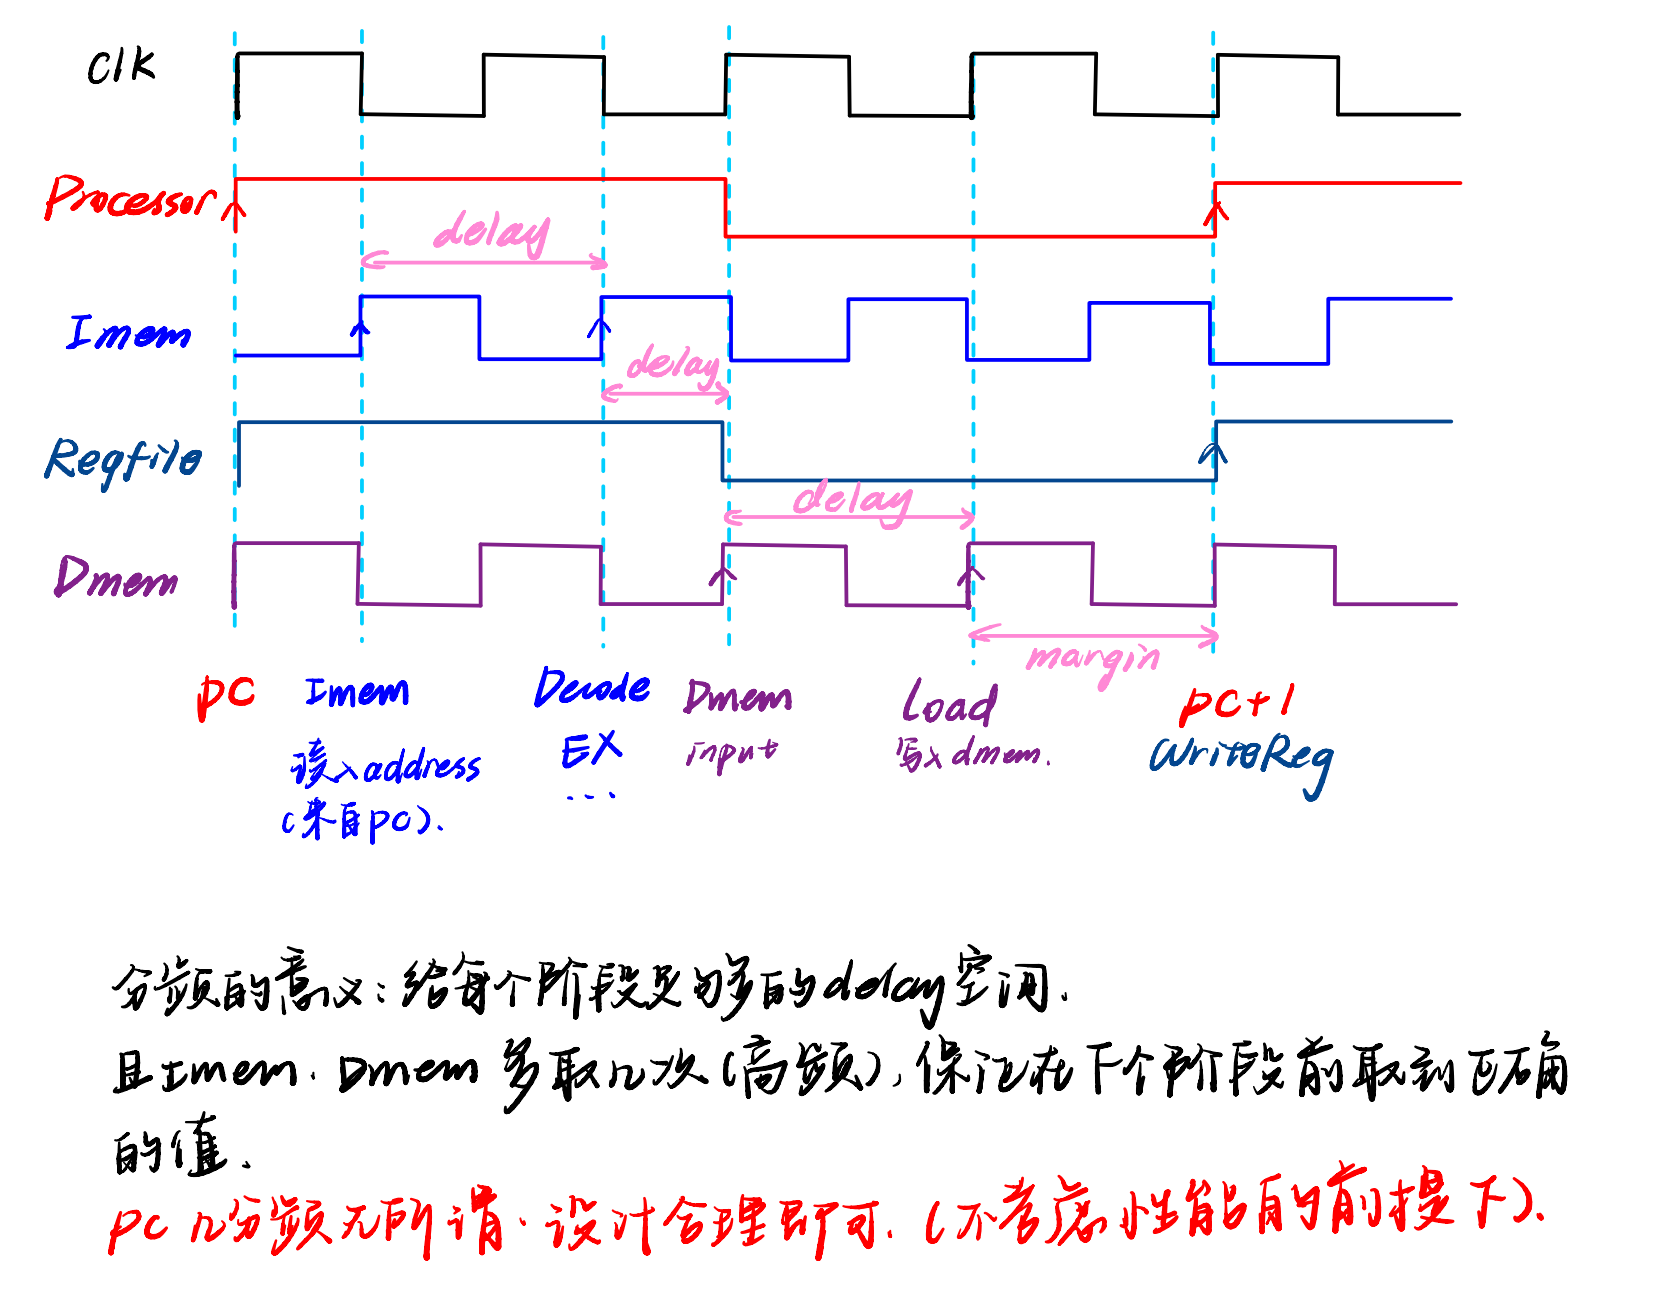 clk
Processor
delay
Imem
delay
Regfile
delay
Dmem
margin
PC
Imem
读入address
(来自PC).
Decode
EX
...
Dmem
input
Load
写入dmem.
PC+1
WriteReg
分频的意义:给每个阶段足够多的delay空间.
且Imem、Dmem 多取几次(高频),保证在下个阶段前取到正确
的值.
PC几分频无所谓.设计合理即可.(不考虑性能的前提下).